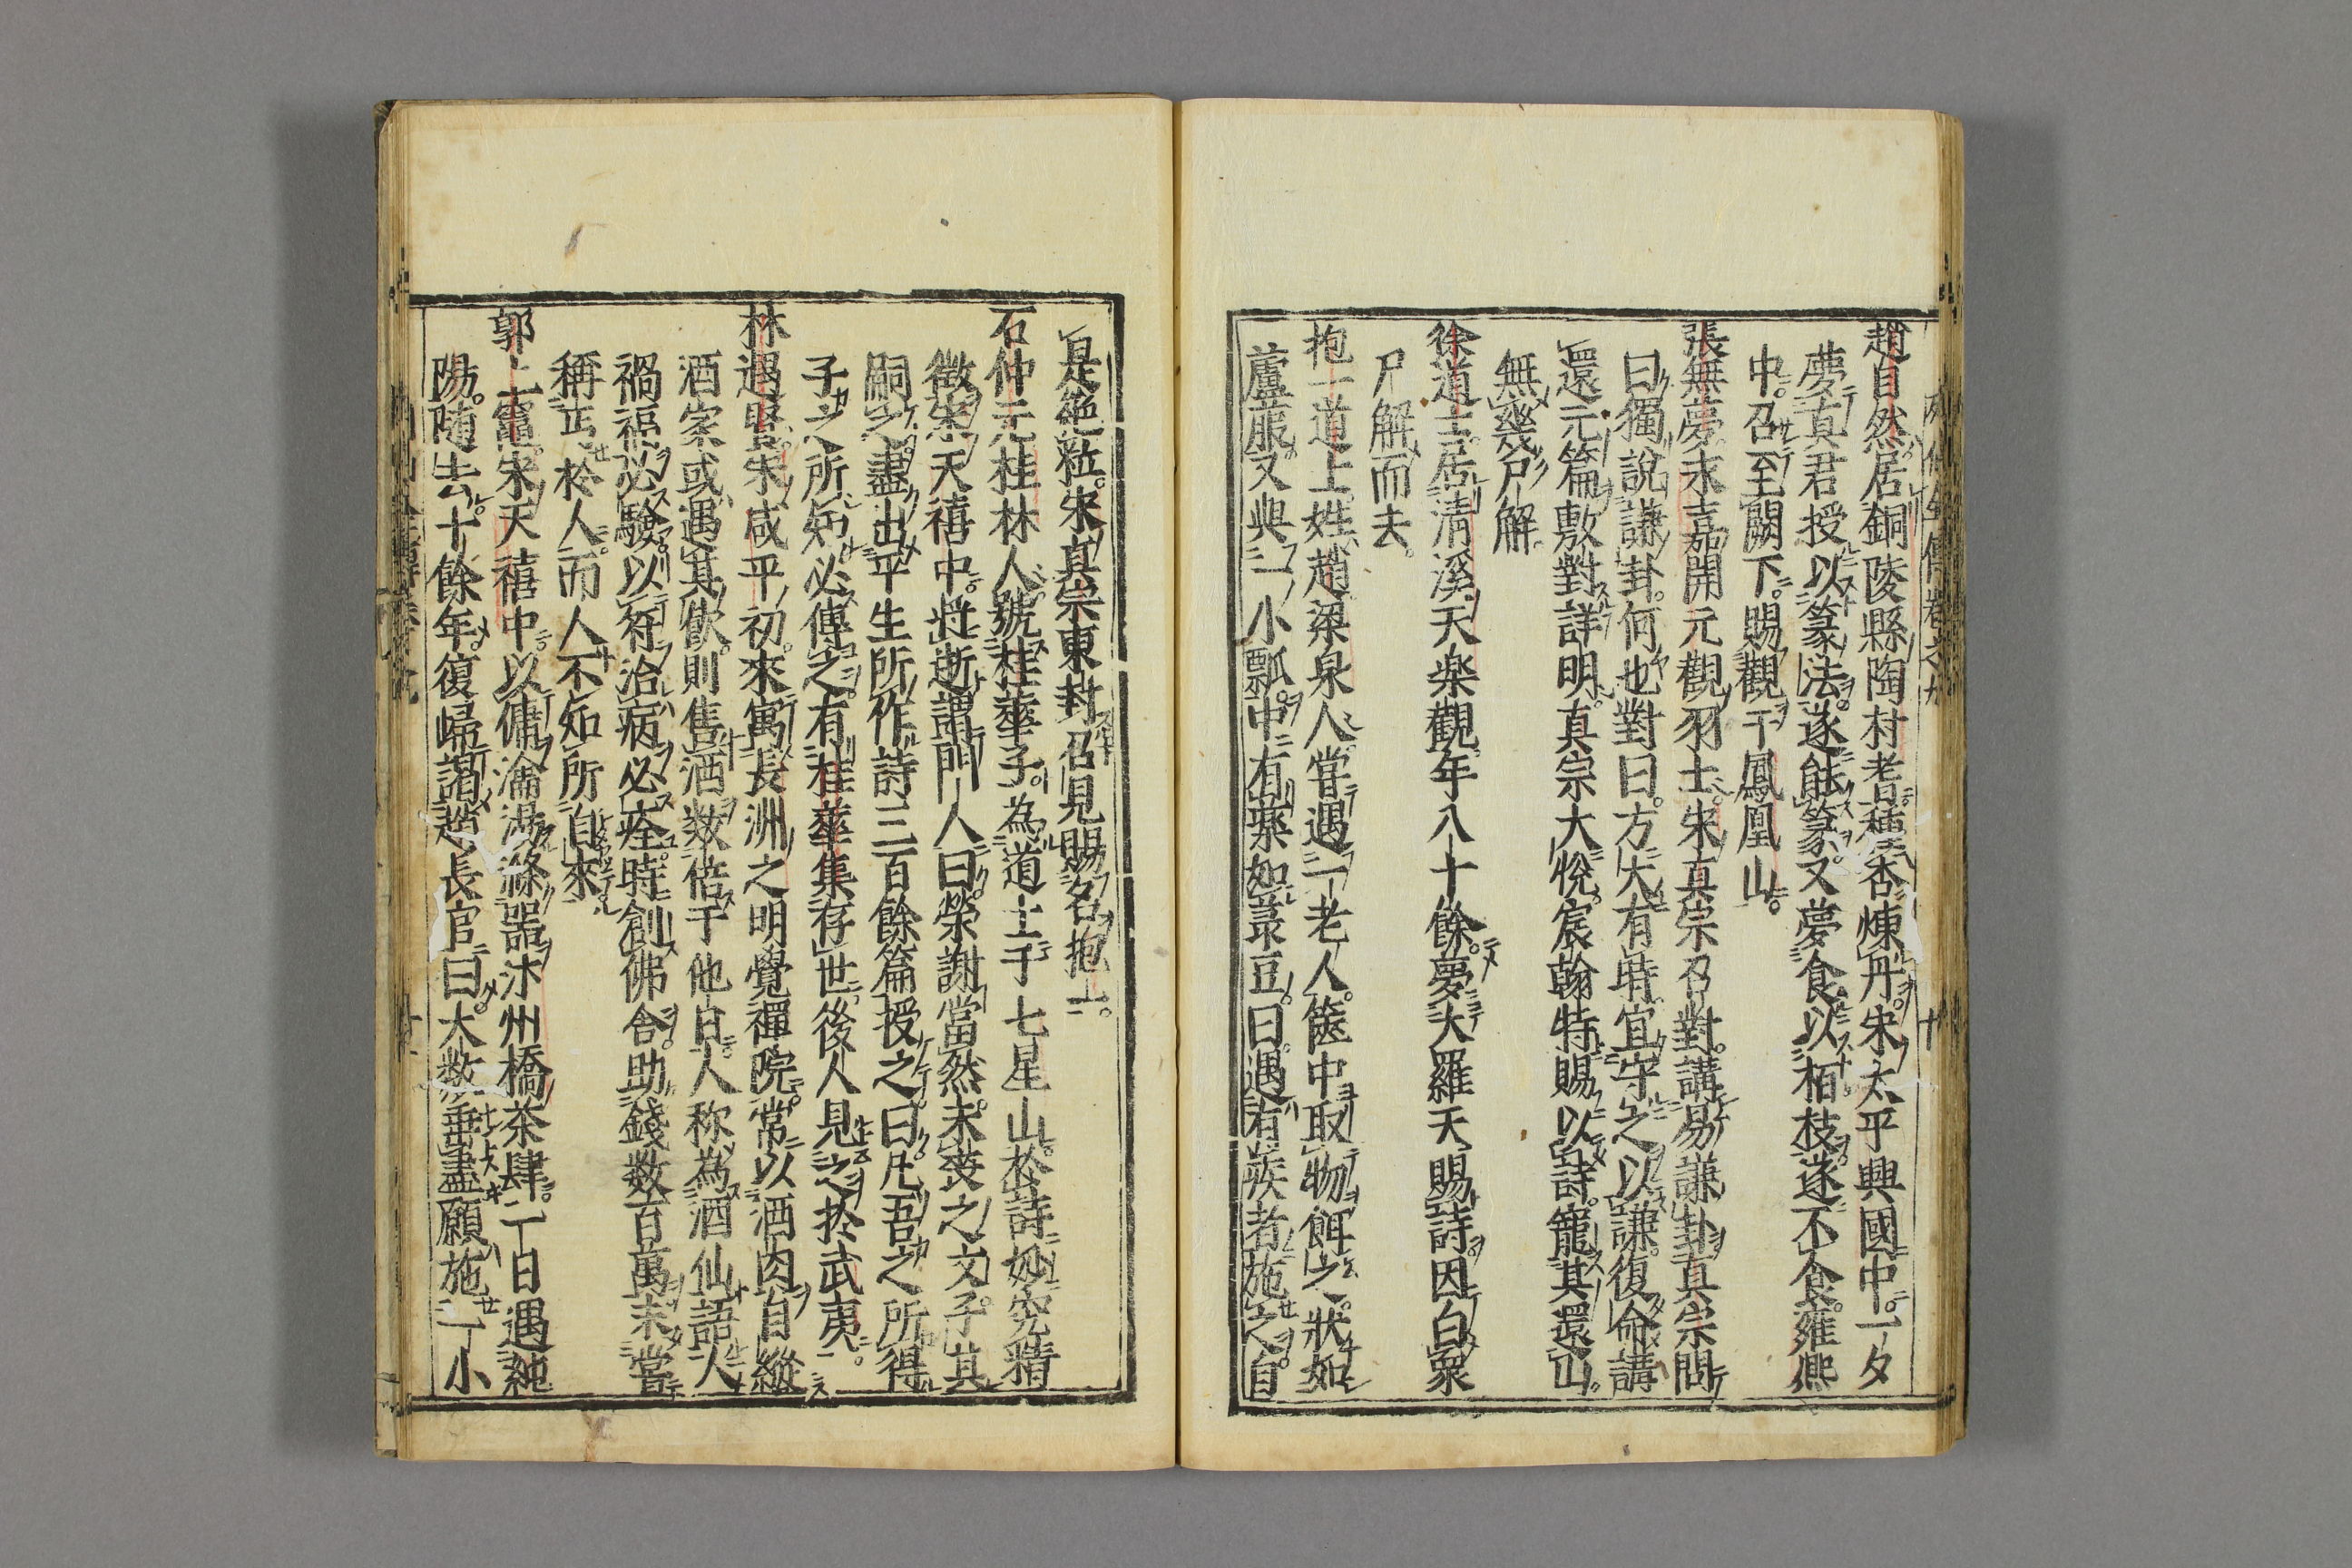 趙自然居銅陵縣陶村老種杏煉丹宋太平興國中一夕
夢真君授以篆法遂能篆又夢食以栢枝遂不食雍熙
中召至闕下賜觀于鳳凰山
張無夢永嘉開元觀羽士宋真宗召對講易謙卦真宗問
曰獨說謙卦何也對曰方大有時宜守之以謙復命講
還元篇敷對詳明真宗大悅宸翰特賜以詩寵其還山
無幾尸解
徐道士居清溪天楽觀年八十餘夢大羅天賜詩因白衆
尸解而去
抱一道士姓趙梁泉人嘗遇一老人篋中取物餌之狀如
蘆菔又與一小瓢中有藥如菉豆曰遇有疾者施之自
是絶粒宋真宗東封召見賜名抱一
石仲元桂林人號桂華子為道士于七星山於詩妙究精
微宋天禧中將逝謂門人曰榮謝當然未喪之文子其
嗣之盡出平生所作詩三百餘篇授之曰凡吾之所得
子之所知必傳之有桂華集存世後人見之於武夷
林遇賢宋咸平初來寓長洲之明覺禪院常以酒肉自縱
酒家或遇其飲則售酒数倍于他日人称為酒仙語人
禍福必驗以符治病必痊時創佛舎助錢数百萬未嘗
稱丐於人而人不知所自來
郭上竈宋天禧中以傭瀹湯滌器汴州橋茶肆一日遇純
陽随去十餘年復歸謁趙長官曰大数垂盡願施一小